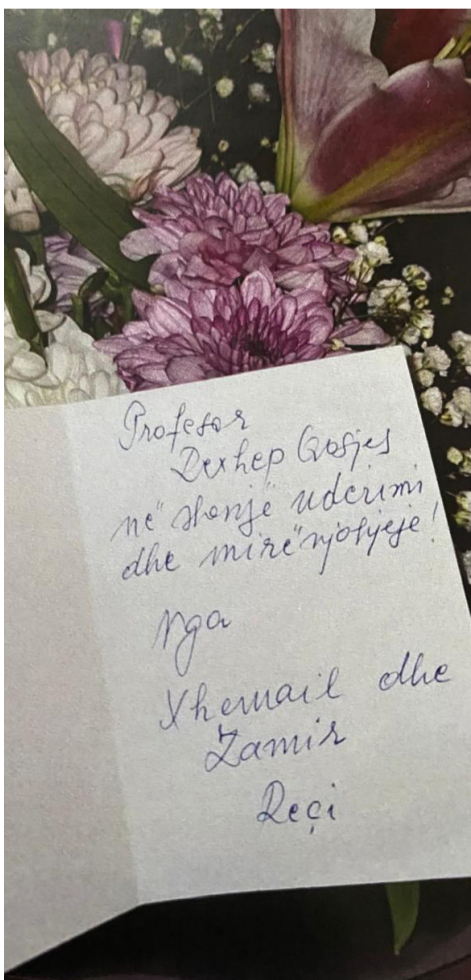 Profesor
Rexhep Qosjes
në shenjë nderimi
dhe mirënjohjeje!
Nga
Xhemail dhe
Zamir
Reçi